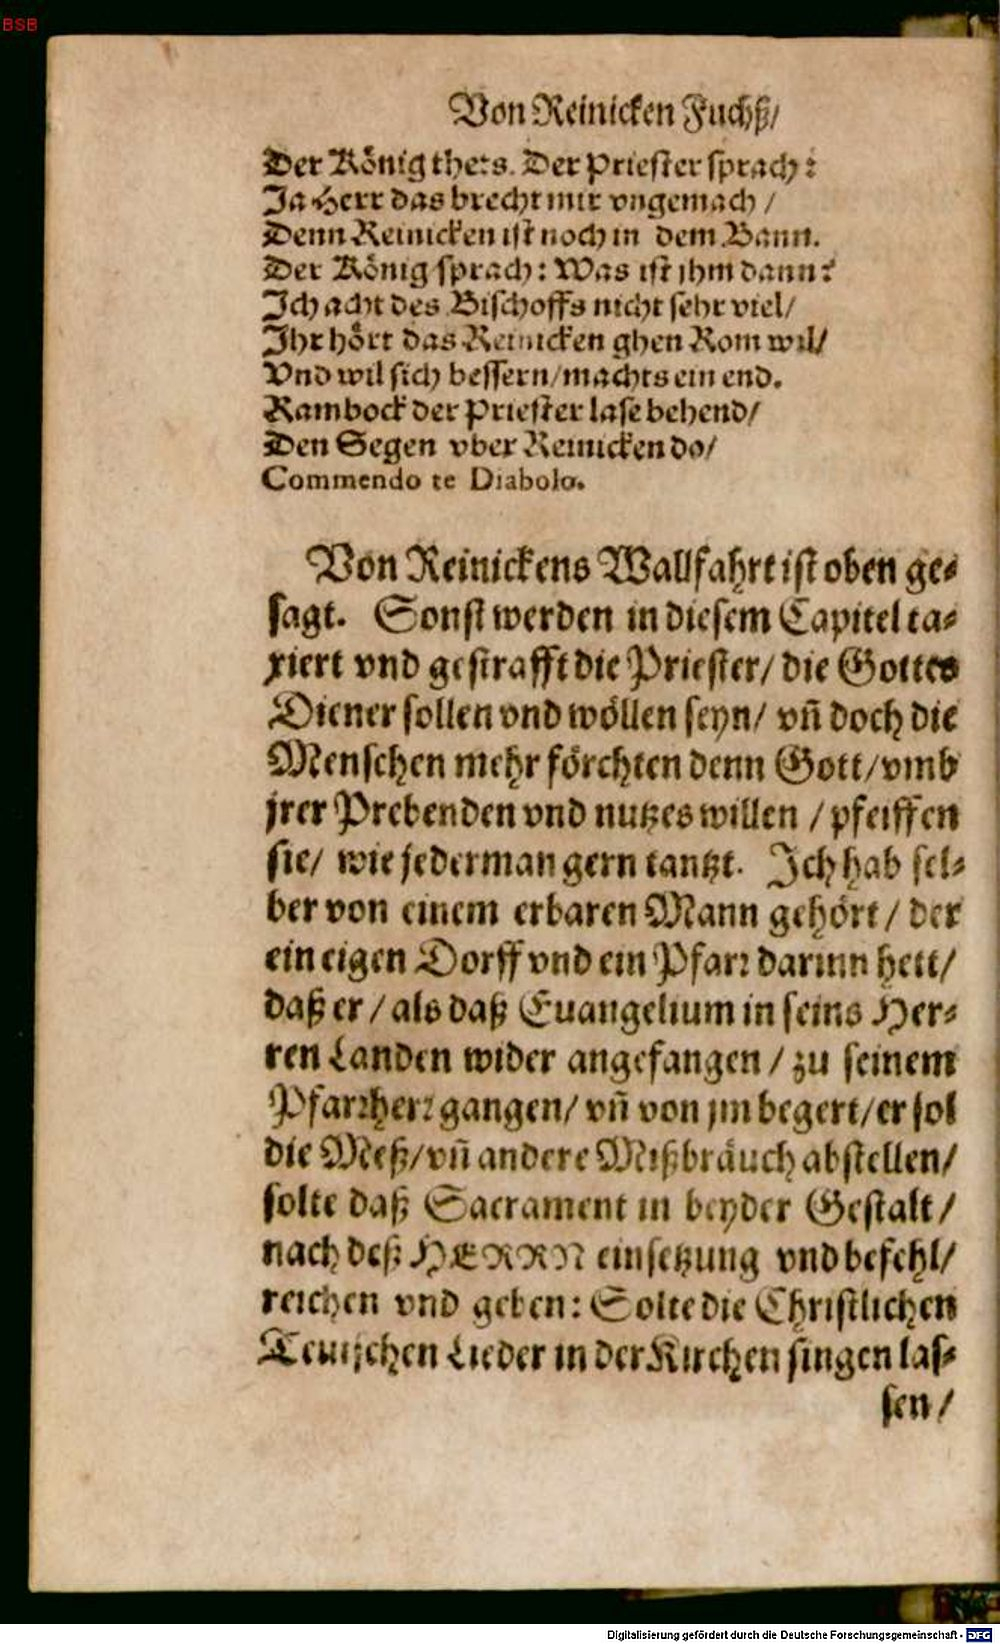 BSB
Von Reinicken Fuchß/
Der König thets. Der Priester sprach:
Ja Herr das brecht mir vngemach /
Denn Reinicken ist noch in dem Bann.
Der König sprach: Was ist ihm dann?
Ich acht des Bischoffs nicht sehr viel/
Ihr hört das Reinicken ghen Rom wil/
Vnd wil sich bessern/machts ein end.
Rambock der Priester lase behend/
Den Segen vber Reinicken do/
Commendo te Diabolo.
Von Reinickens Wallfahrt ist oben ge⸗
sagt. Sonst werden in diesem Capitel ta⸗
xiert vnd gestrafft die Priester/ die Gottes
Diener sollen vnd wöllen seyn/ vñ doch die
Menschen mehr förchten denn Gott/vmb
jrer Prebenden vnd nutzes willen / pfeiffen
sie/ wie jederman gern tantzt. Ich hab sel⸗
ber von einem erbaren Mann gehört / der
ein eigen Dorff vnd ein Pfarr darinn hett/
daß er / als daß Euangelium in seins Her⸗
ren Landen wider angefangen / zu seinem
Pfarrherr gangen/ vñ von jm begert/er sol
die Meß/vñ andere Mißbräuch abstellen/
solte daß Sacrament in beyder Gestalt /
nach deß HERRN einsetzung vnd befehl/
reichen vnd geben: Solte die Christlichen
Teutschen Lieder in der Kirchen singen las⸗
sen /
Digitalisierung gefördert durch die Deutsche Forschungsgemeinschaft - DFG